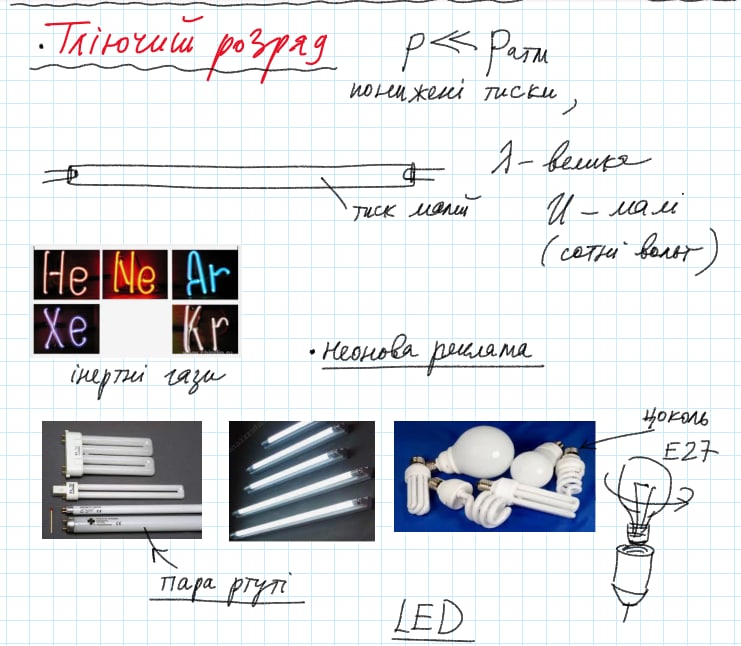 · Тліючий розряд
p << Pатм
понижені тиски,
λ - велика
тиск малий
U - малі
(сотні вольт)
He Ne Ar
Xe Kr
інертні гази
· неонова реклама
цоколь
E27
пара ртуті
LED